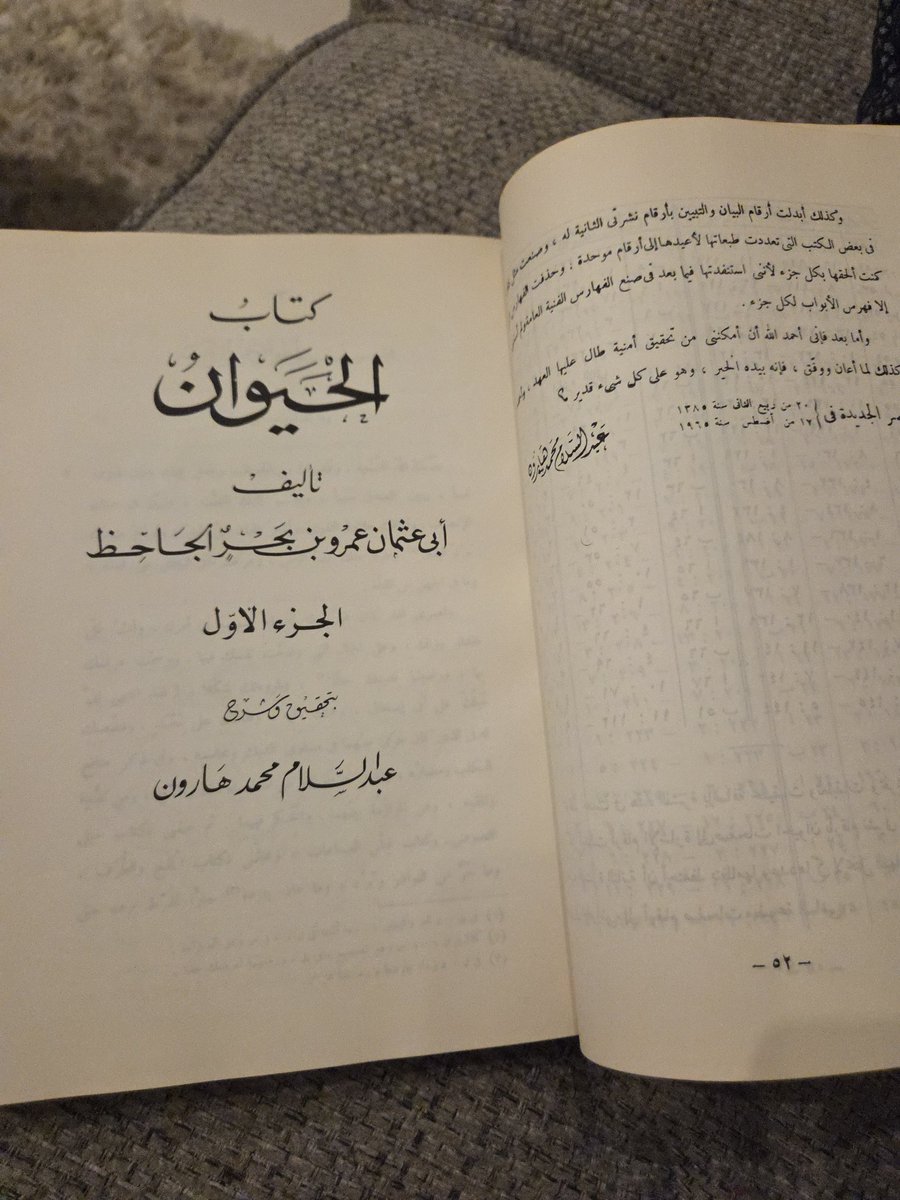 وكذلك أبدلت أرقام البيان والتبيين بأرقام نشرتى الثانية له ، وصنعت مثل
فى بعض الكتب التى تعددت طبعاتها لأعيدها إلى أرقام موحدة ، وحذفت الفهارس
كنت ألحقها بكل جزء لأننى استنفدتها فيما بعد فى صنع الفهارس الفنية العامة
إلا فهرس الأبواب لكل جزء .
وأما بعد فإنى أحمد الله أن أمكننى من تحقيق أمنية طال عليها العهد ،
كذلك لما أعان ووفق ، فإنه بيده الخير ، وهو على كل شىء قدير
الجديدة فى
٢٠ من ربيع الثانى سنة ١٣٨٥
١٧ من أغسطس سنة ١٩٦٥
عبد السلام محمد هارون
– ٥٢ –
كتاب
الحَيَوانُ
تأليف
أبى عثمان عمرو بن بحر الجاحظ
الجزء الأوّل
بتحقيق وشرح
عبد السَّلام محمد هارون